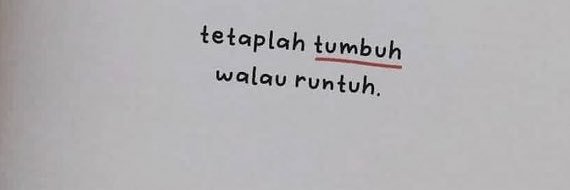 tetaplah tumbuh
walau runtuh.